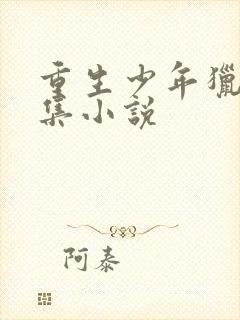 重生少年獵
集小說
阿泰